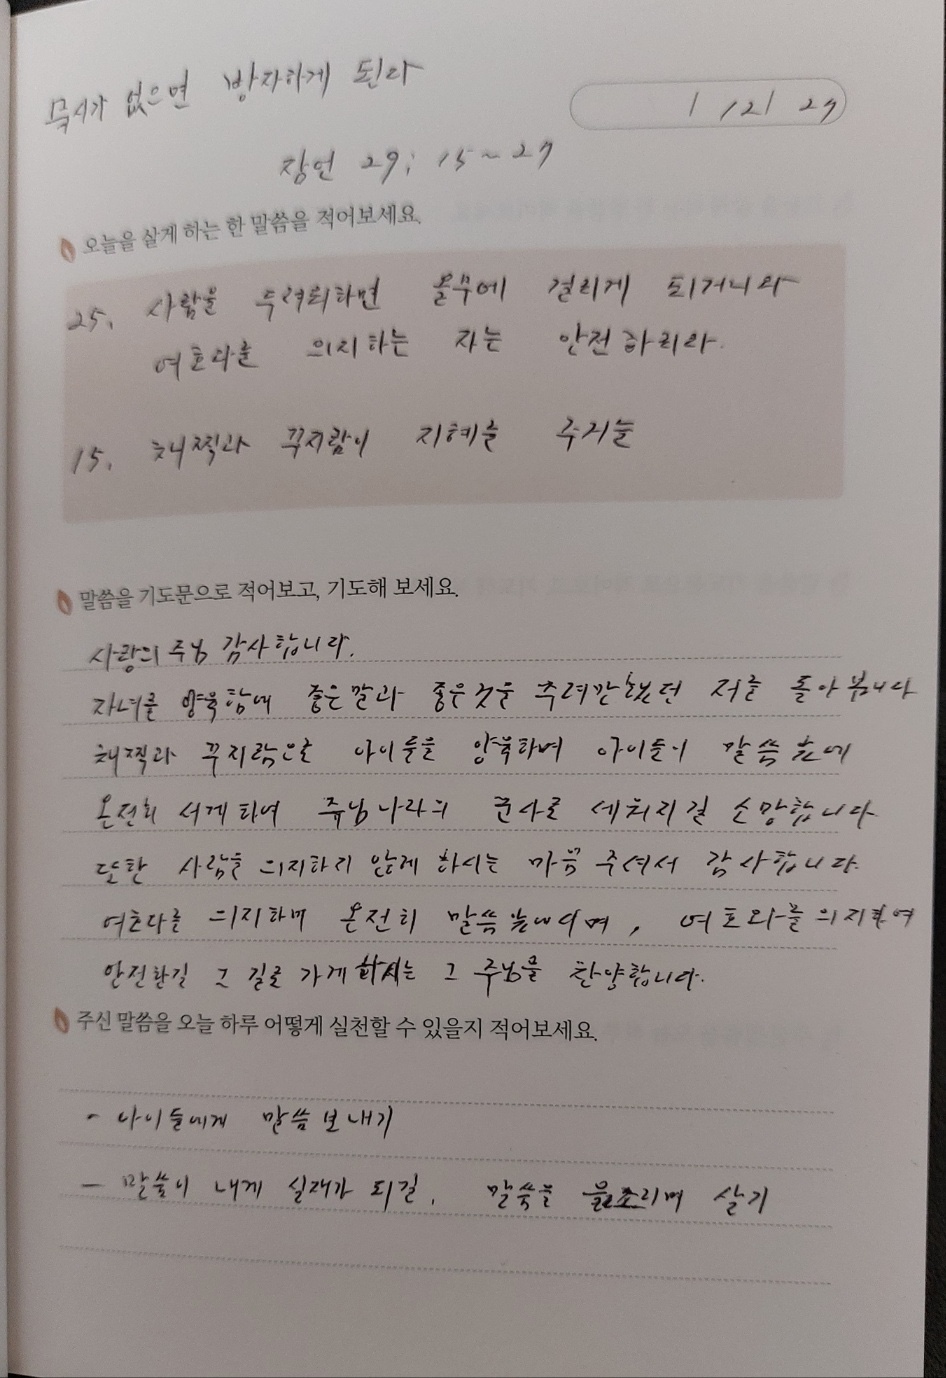 묵시가 없으면 방자하게 된다
1 /2/ 27
잠언 29; 15~27
오늘을 살게 하는 한 말씀을 적어보세요.
25. 사람을 두려워하면 올무에 걸리게 되거니와
여호와를 의지하는 자는 안전하리라.
15. 채찍과 꾸지람이 지혜를 주거늘
말씀을 기도문으로 적어보고, 기도해 보세요.
사랑의 주님 감사합니다.
자녀를 양육함에 좋은말과 좋은것을 주려만했던 저를 돌아봅니다
채찍과 꾸지람으로 아이들을 양육하며 아이들이 말씀안에
온전히 서게 되어 주님나라의 군사로 세워지길 소망합니다
또한 사람을 의지하지 않게 하시는 마음 주셔서 감사합니다.
여호와를 의지하며 온전히 말씀 , 여호와를 의지하여
안전한길 그 길로 가게 하시는 그 주님을 찬양합니다.
주신 말씀을 오늘 하루 어떻게 실천할 수 있을지 적어보세요.
- 아이들에게 말씀 보내기
- 말씀이 내게 실재가 되길, 말씀을 읊조리며 살기